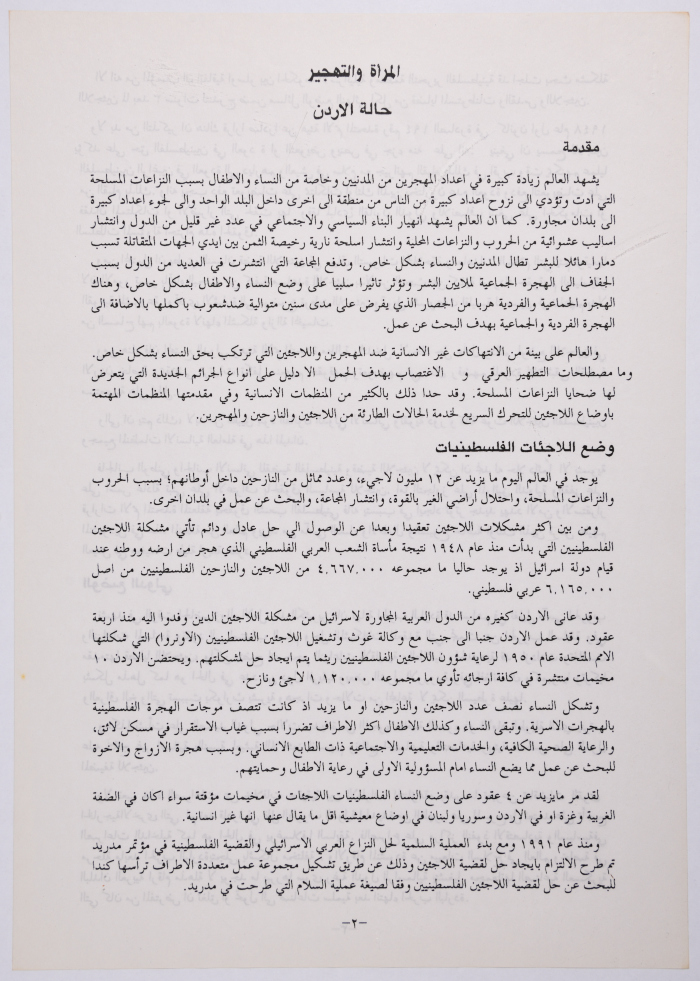 المرأة والتهجير
حالة الاردن
مقدمة
يشهد العالم زيادة كبيرة في اعداد المهجرين من المدنيين وخاصة من النساء والاطفال بسبب النزاعات المسلحة
التي ادت وتؤدي الى نزوح اعداد كبيرة من الناس من منطقة الى اخرى داخل البلد الواحد والى لجوء اعداد كبيرة
الى بلدان مجاورة. كما ان العالم يشهد انهيار البناء السياسي والاجتماعي في عدد غير قليل من الدول وانتشار
اساليب عشوائية من الحروب والنزاعات المحلية وانتشار اسلحة نارية رخيصة الثمن بين ايدي الجهات المتقاتلة تسبب
دمارا هائلا للبشر تطال المدنيين والنساء بشكل خاص. وتدفع المجاعة التي انتشرت في العديد من الدول بسبب
الجفاف الى الهجرة الجماعية لملايين البشر وتؤثر تاثيرا سلبيا على وضع النساء والاطفال بشكل خاص، وهناك
الهجرة الجماعية والفردية هربا من الحصار الذي يفرض على مدى سنين متوالية ضدشعوب باكملها بالاضافة الى
الهجرة الفردية والجماعية بهدف البحث عن عمل.
والعالم على بينة من الانتهاكات غير الانسانية ضد المهجرين واللاجئين التي ترتكب بحق النساء بشكل خاص.
وما مصطلحات التطهير العرقي و الاغتصاب بهدف الحمل الا دليل على انواع الجرائم الجديدة التي يتعرض
لها ضحايا النزاعات المسلحة. وقد حدا ذلك بالكثير من المنظمات الانسانية وفي مقدمتها المنظمات المهتمة
باوضاع اللاجئين للتحرك السريع لخدمة الحالات الطارئة من اللاجئين والنازحين والمهجرين.
وضع اللاجئات الفلسطينيات
يوجد في العالم اليوم ما يزيد عن ١٢ مليون لاجيء، وعدد مماثل من النازحين داخل أوطانهم؛ بسبب الحروب
والنزاعات المسلحة، واحتلال أراضي الغير بالقوة، وانتشار المجاعة، والبحث عن عمل في بلدان اخرى.
ومن بين اكثر مشكلات اللاجئين تعقيدا وبعدا عن الوصول الي حل عادل ودائم تأتي مشكلة اللاجئين
الفلسطينيين التي بدأت منذ عام ١٩٤٨ نتيجة مأساة الشعب العربي الفلسطيني الذي هجر من ارضه ووطنه عند
قيام دولة اسرائيل اذ يوجد حاليا ما مجموعه ٤.٦٦٧.٠٠٠ من اللاجئين والنازحين الفلسطينيين من اصل
٦.١٦٥.٠٠٠ عربي فلسطيني.
وقد عانى الاردن كغيره من الدول العربية المجاورة لاسرائيل من مشكلة اللاجئين الدين وفدوا اليه منذ اربعة
عقود. وقد عمل الاردن جنبا الى جنب مع وكالة غوث وتشغيل اللاجئين الفلسطينيين (الاونروا) التي شكلتها
الامم المتحدة عام ١٩٥٠ لرعاية شؤون اللاجئين الفلسطينيين ريثما يتم ايجاد حل لمشكلتهم. ويحتضن الاردن ١٠
مخيمات منتشرة في كافة ارجائه تأوي ما مجموعه ١.١٢٠.٠٠٠ لاجئ ونازح.
وتشكل النساء نصف عدد اللاجئين والنازحين او ما يزيد اذ كانت تتصف موجات الهجرة الفلسطينية
بالهجرات الاسرية. وتبقى النساء وكذلك الاطفال اكثر الاطراف تضررا بسبب غياب الاستقرار في مسكن لائق،
والرعاية الصحية الكافية، والخدمات التعليمية والاجتماعية ذات الطابع الانساني. وبسبب هجرة الازواج والاخوة
للبحث عن عمل مما يضع النساء امام المسؤولية الاولى في رعاية الاطفال وحمايتهم.
لقد مر مايزيد عن ٤ عقود على وضع النساء الفلسطينيات اللاجئات في مخيمات مؤقتة سواء اكان في الضفة
الغربية وغزة او في الاردن وسوريا ولبنان في اوضاع معيشية اقل ما يقال عنها انها غير انسانية.
ومنذ عام ١٩٩١ ومع بدء العملية السلمية لحل النزاع العربي الاسرائيلي والقضية الفلسطينية في مؤتمر مدريد
تم طرح الالتزام بايجاد حل لقضية اللاجئين وذلك عن طريق تشكيل مجموعة عمل متعددة الاطراف ترأسها كندا
للبحث عن حل لقضية اللاجئين الفلسطينيين وفقا لصيغة عملية السلام التي طرحت في مدريد.
-٢-